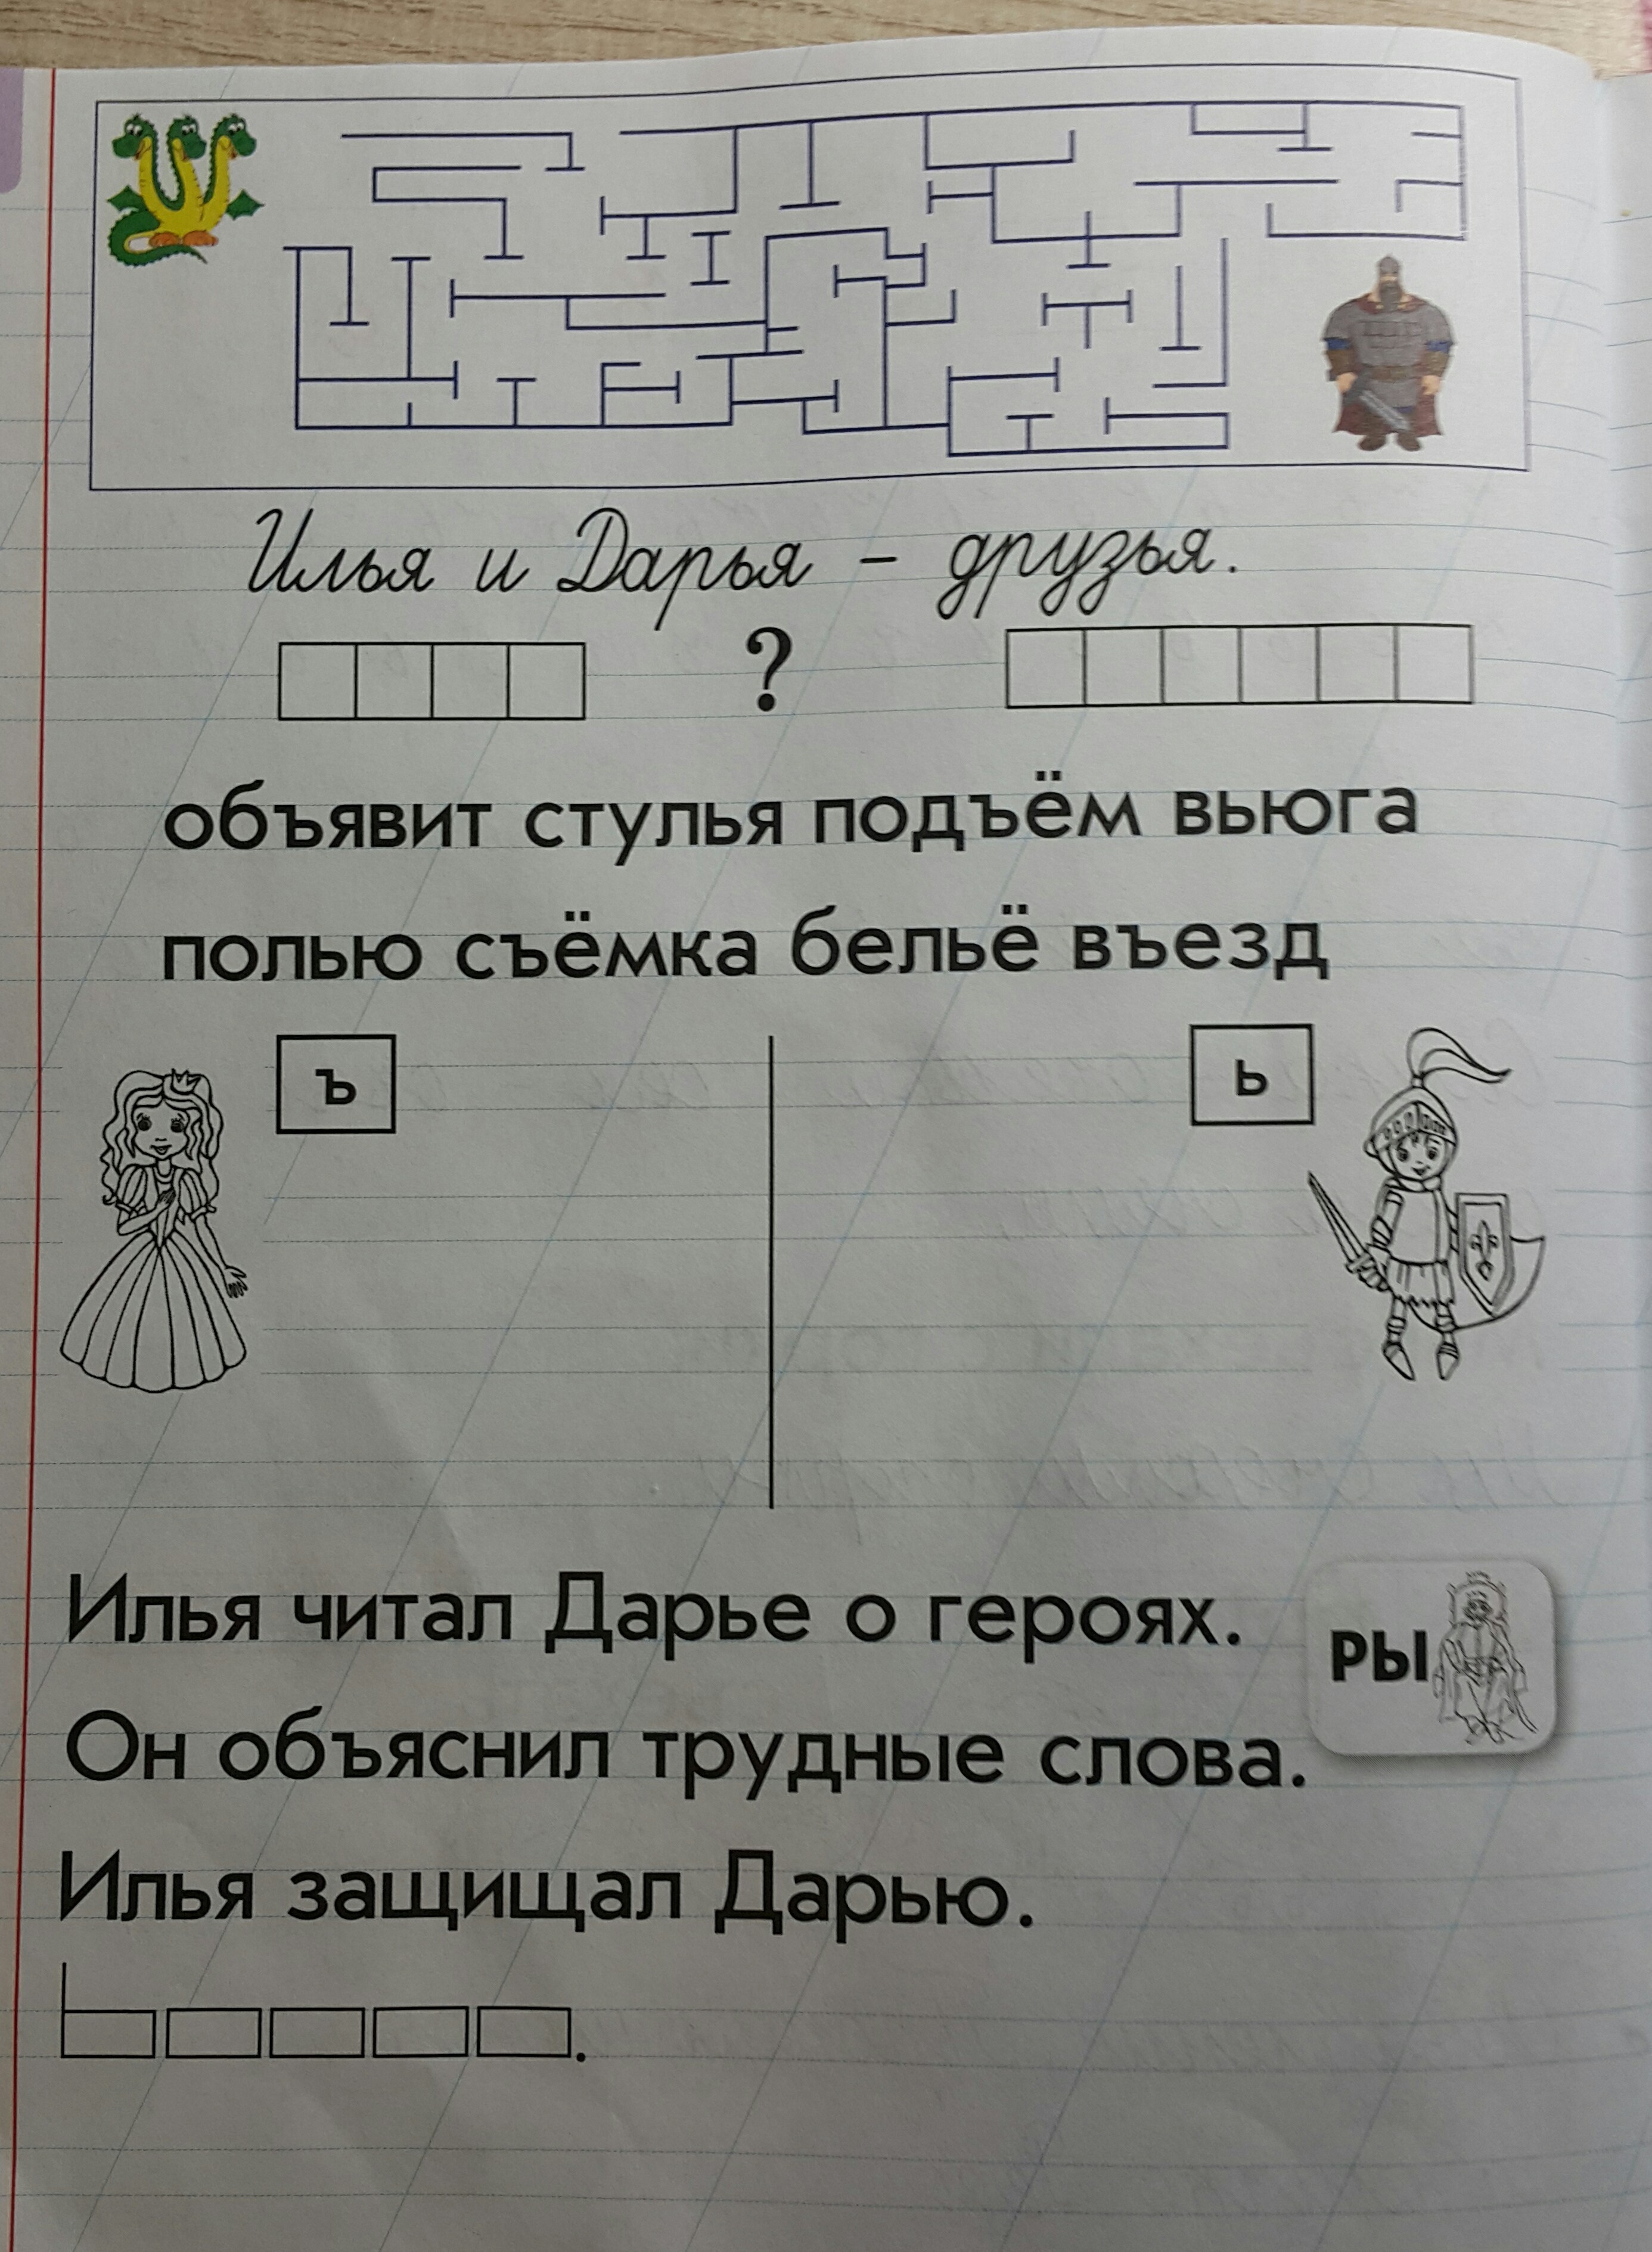 Илья и Дарья – друзья.
?
объявит стулья подъём вьюга
полью съёмка бельё въезд
ъ ь
Илья читал Дарье о героях.
РЫ
Он объяснил трудные слова.
Илья защищал Дарью.
.